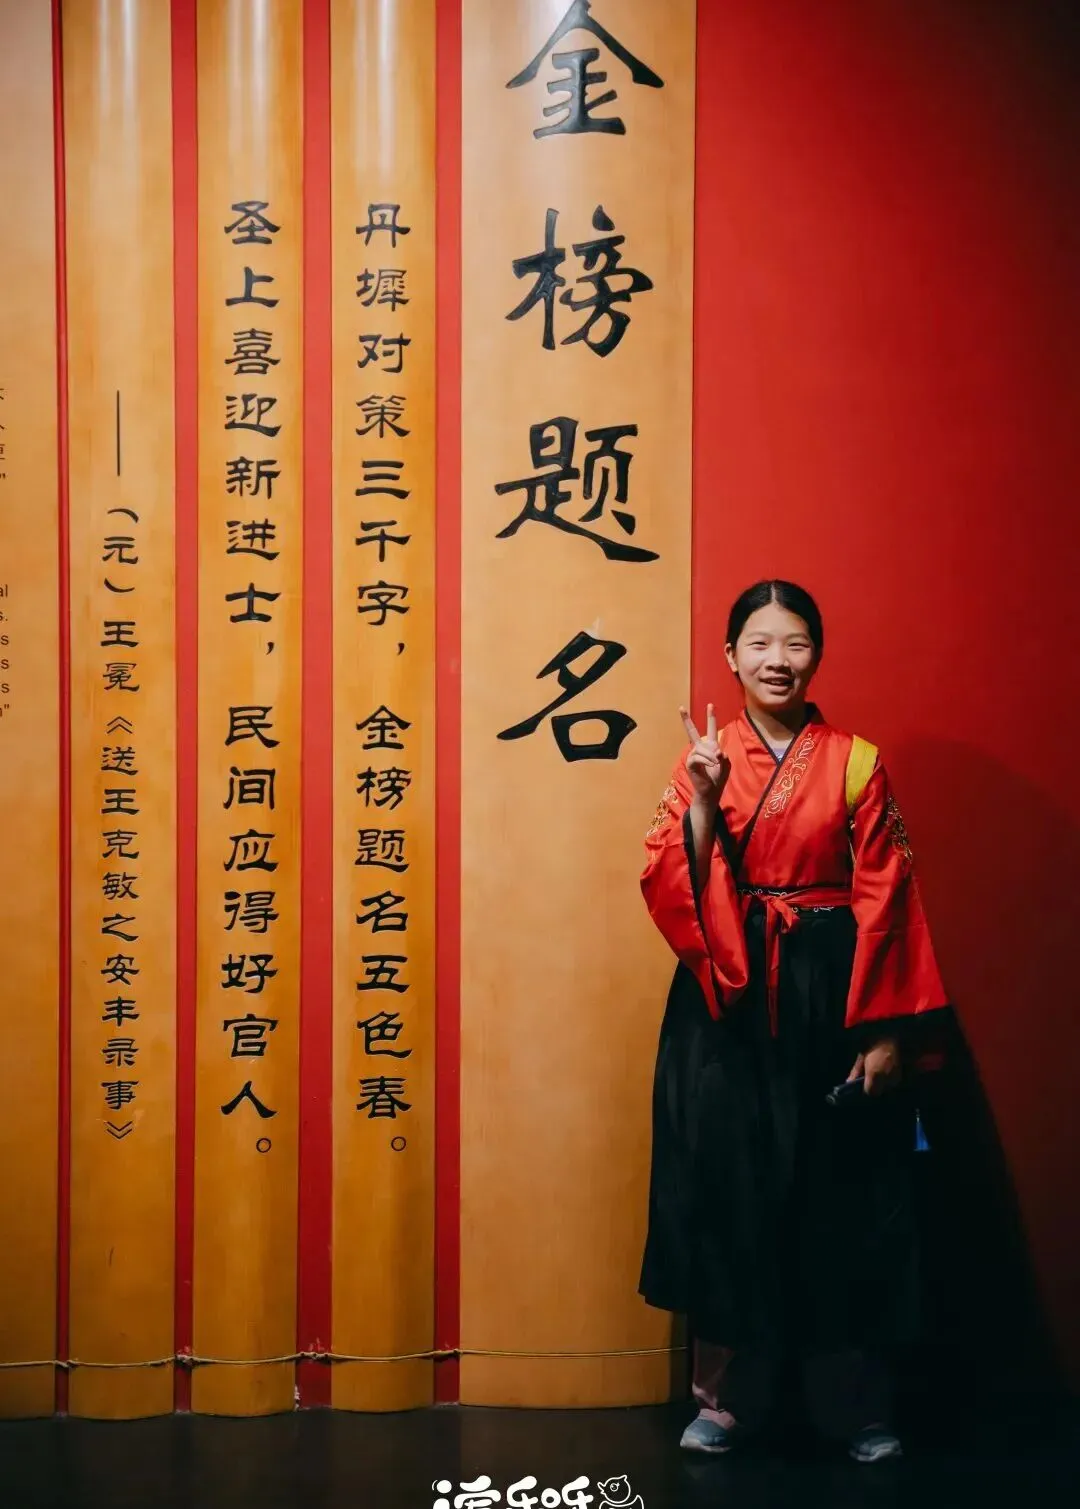 金榜题名
丹墀对策三千字，金榜题名五色春。
圣上喜迎新进士，民间应得好官人。
——（元）王冕《送王克敏之安丰录事》